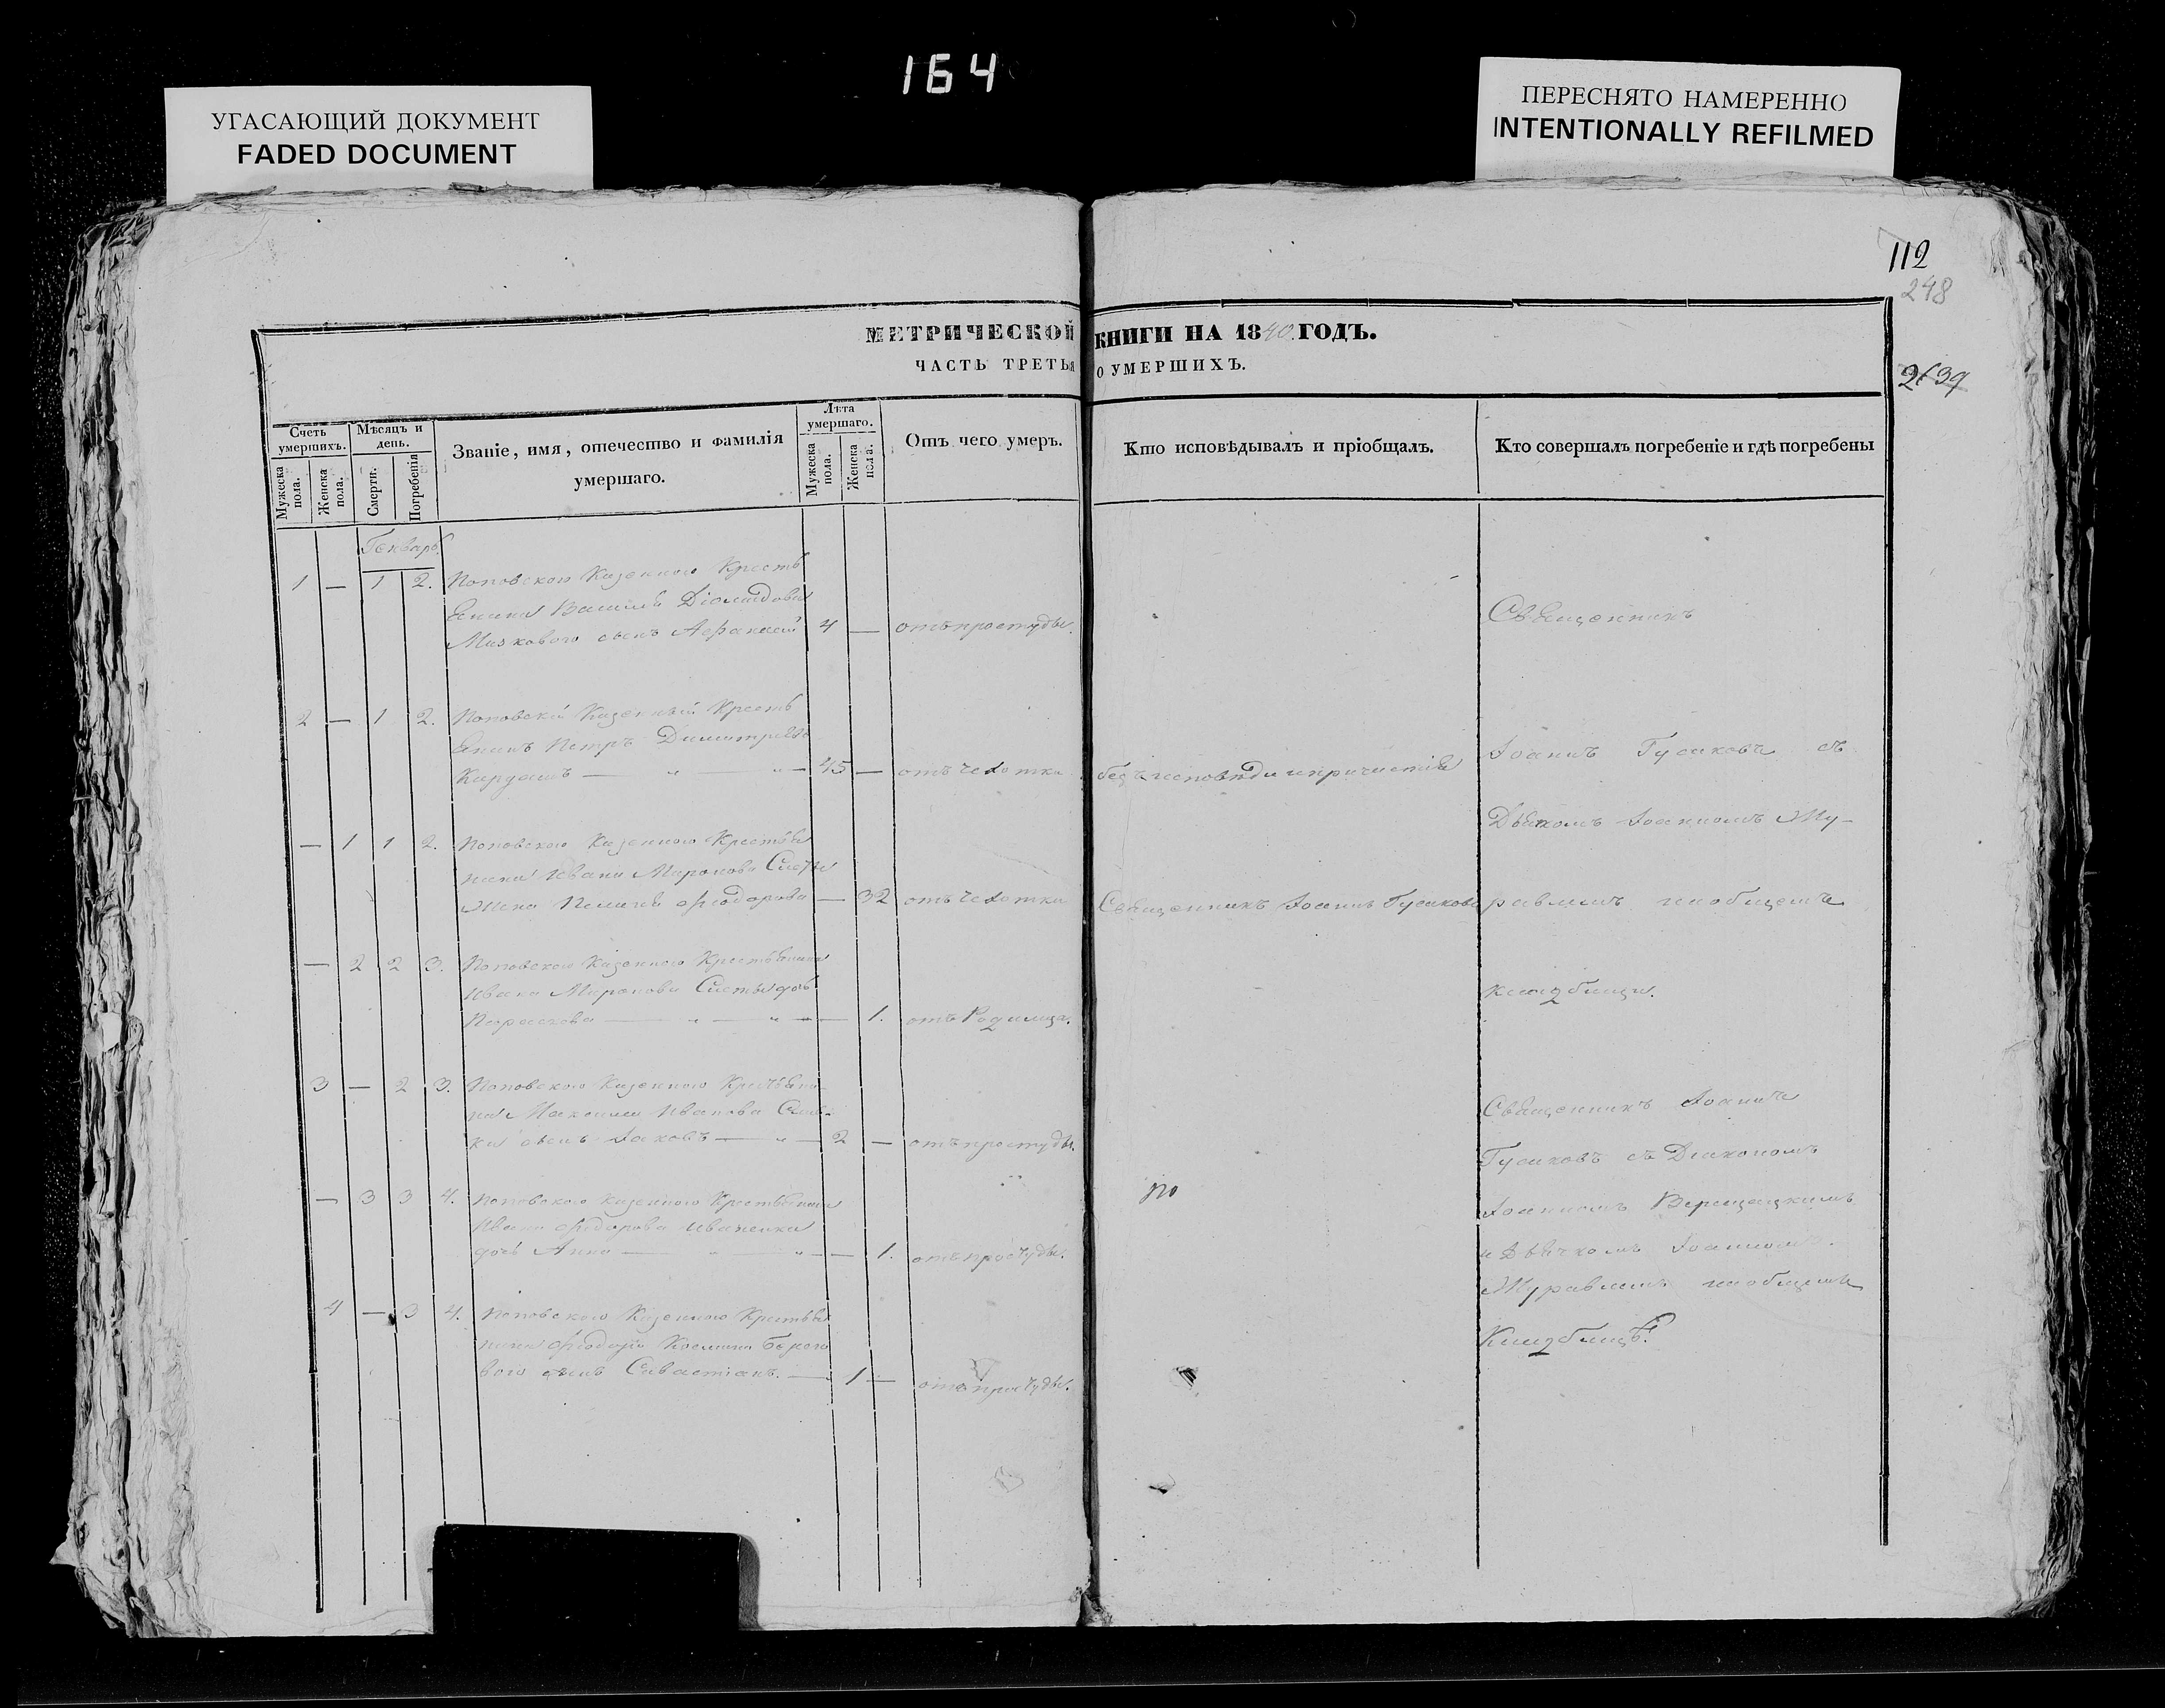 164
УГАСАЮЩИЙ ДОКУМЕНТ
FADED DOCUMENT
ПЕРЕСНЯТО НАМЕРЕННО
INTENTIONALLY REFILMED
112
248
МЕТРИЧЕСКОЙ КНИГИ НА 1840 ГОДЪ.
ЧАСТЬ ТРЕТЬЯ О УМЕРШИХЪ.
Счетъ умершихъ.
Мужеска пола.
Женска пола.
Мѣсяцъ и день.
Смерти.
Погребенія
Званіе, имя, отечество и фамилія
умершаго.
Лѣта умершаго.
Мужеска пола.
Женска пола.
Отъ чего умеръ.
Кто исповѣдывалъ и пріобщалъ.
Кто совершалъ погребеніе и гдѣ погребены
Генварь
1 — 1 2. Поповского Казенного Кресть
янина Василія Діомидова
сынъ Афанасій 4 — отъ простуды.
2 — 1 2. Поповскій Казенный Кресть
янинъ Петръ Димитріевъ
45 — отъ чехотки безъ исповѣди и причастія
— 1 1 2. Поповского Казенного Крестья
нина Ивана Миронова
жена Ѳіодорова — 32 отъ чехотки Священникъ Іоаннъ Гусаковъ
— 2 2 3. Поповского Казенного Крестьянина
Ивана Миронова дочь
— 1. отъ Родимца.
3 — 2 3. Поповского Казенного Крестьяни-
на Иванова
сынъ Іаковъ — 2 — отъ простуды.
— 3 3 4. Поповского Казенного Крестьянина
Ивана Ѳіодорова Иваненка
дочь Анна — 1. отъ простуды.
4 — 3 4. Поповского Казенного Крестья
нина
вого сынъ Савастіанъ. — 1 — отъ простуды.
Священникъ
Іоаннъ Гусаковъ съ
Дьячкомъ Іоанномъ Жу-
равлемъ наобщемъ
кладбищи.
Священникъ Іоаннъ
Гусаковъ съ Діакономъ
Іоанномъ Верещацкимъ
и Дьячкомъ Іоанномъ
Журавлемъ наобщемъ
Кладбищѣ.